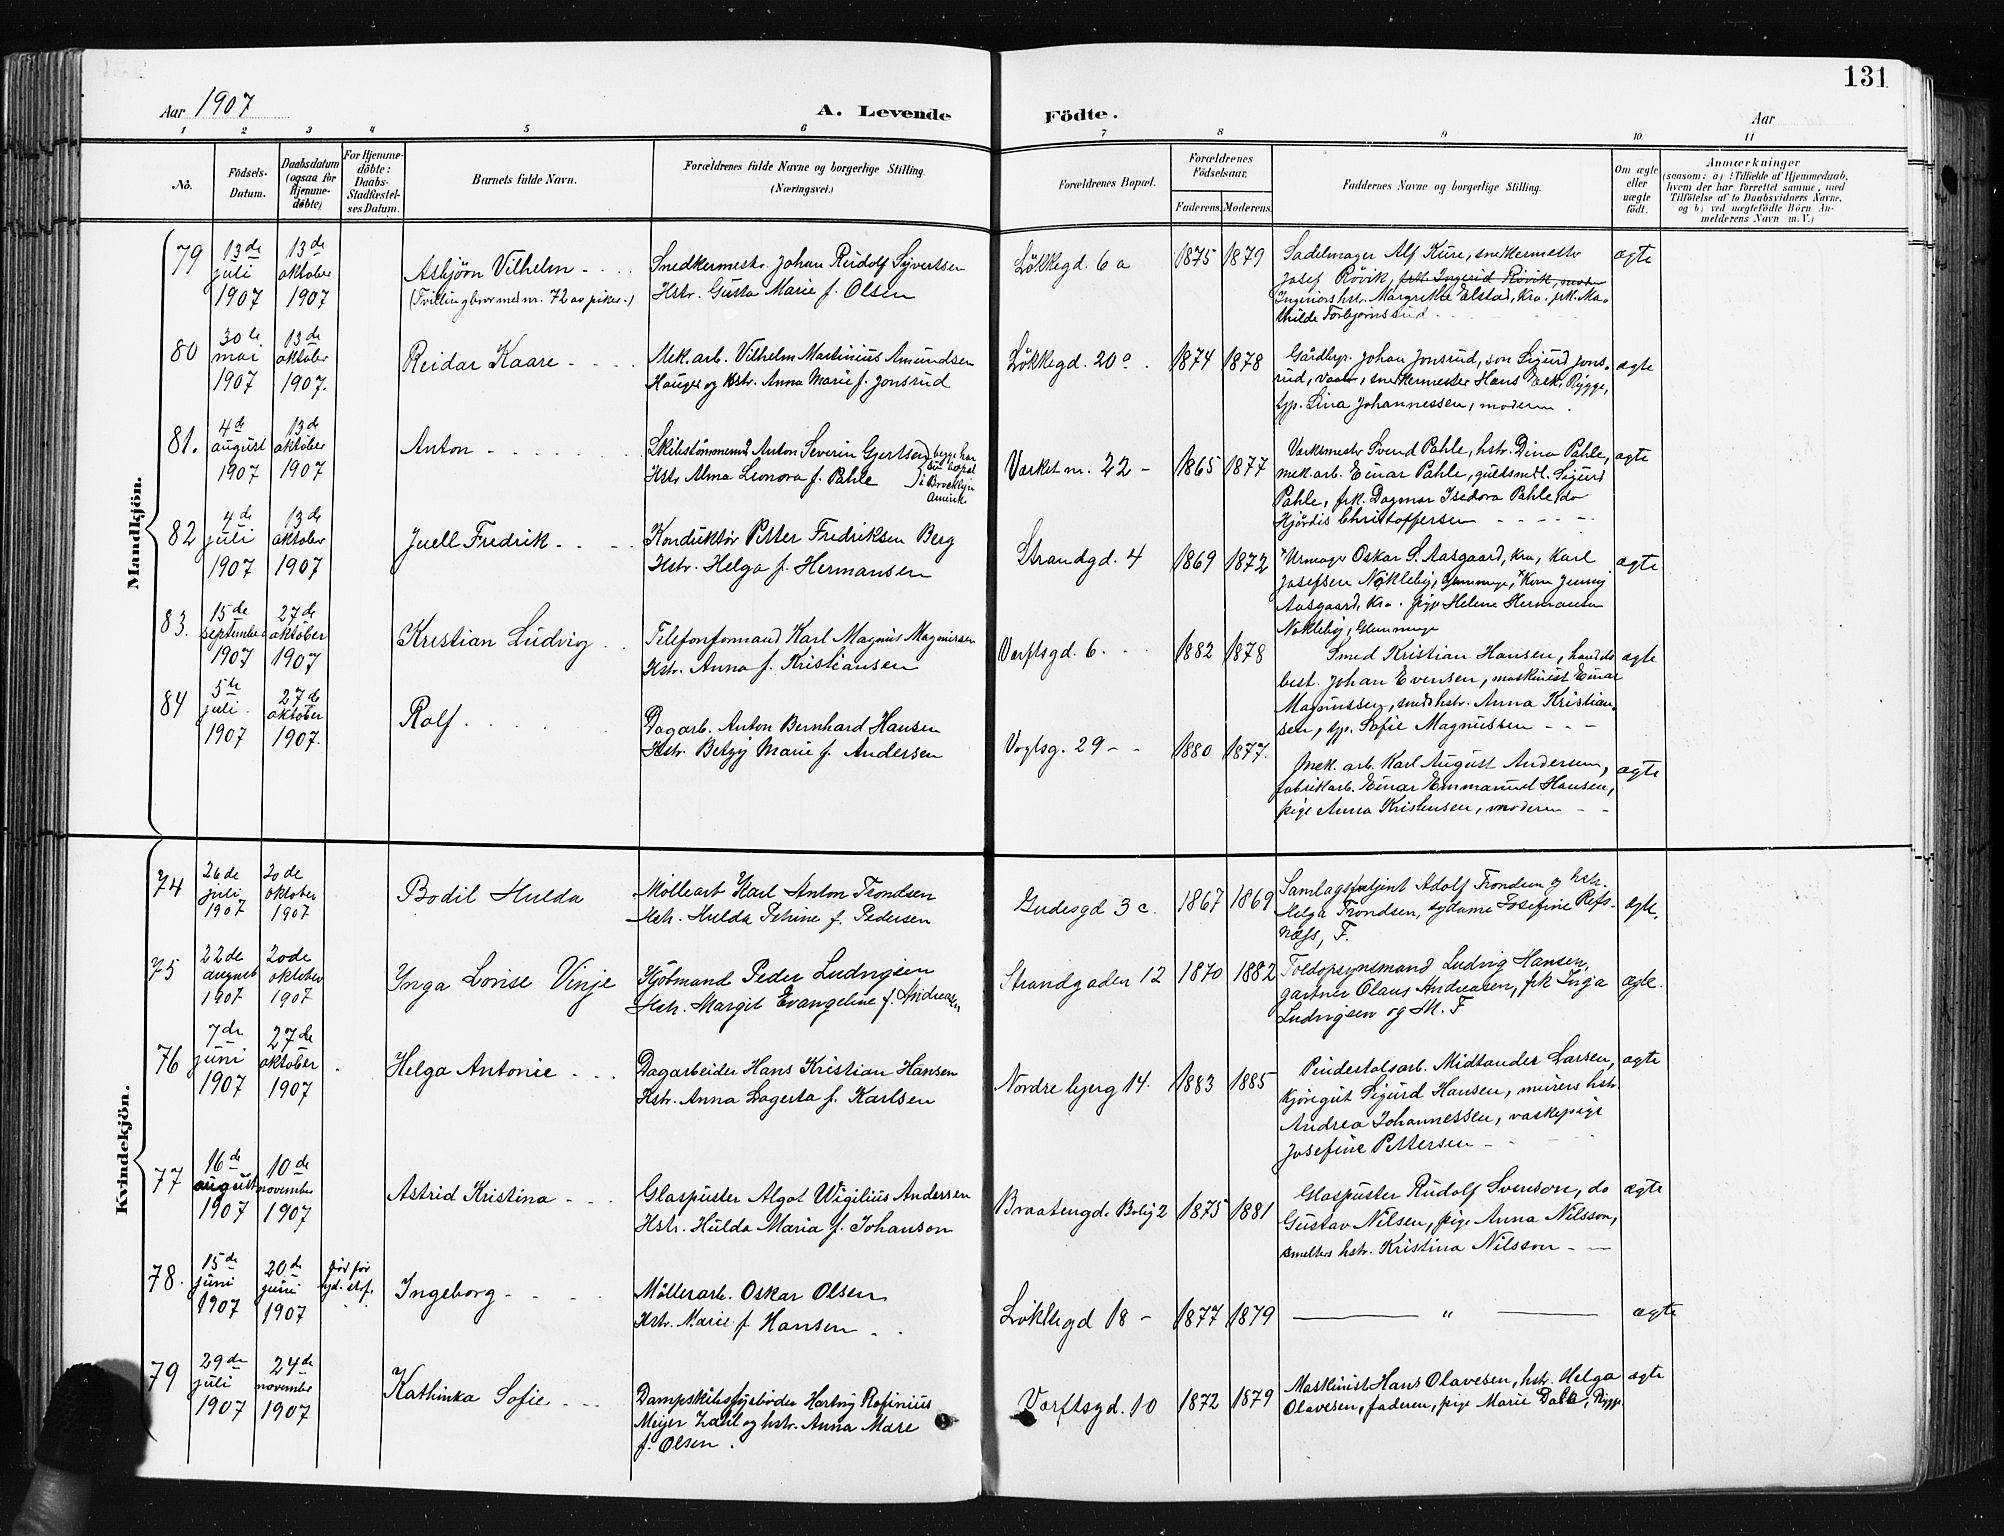 131
Aar 1907
A. Levende Födte.
Aar
1 2 3 4 5 6 7 8 9 10 11
No.
Födsels-Datum.
Daabsdatum (ogsaa for Hjemme-döbte)
For Hjemme-döbte: Daabs-Stadfæstel-ses Datum.
Barnets fulde Navn.
Forældrenes fulde Navne og borgerlige Stilling. (Næringsvei.)
Forældrenes Bopæl.
Forældrenes Födselsaar.
Faderens. Moderens.
Faddernes Navne og borgerlige Stilling.
Om ægte eller uægte födt.
Anmærkninger
(saasom: a) i Tilfælde af Hjemmedaab,
hvem der har forrettet samme, med
Tilföielse af to Daabsvidners Navne,
og b) ved uægtefödte Börn An-
melderens Navn m. V.)
Mandkjön.
79 13de juli 1907 13de oktober 1907
Asbjørn Vilhelm
(Tvillingbror med nr. 72 av piker.)
Snedkermestr. Johan Rudolf Syvertsen
Hstr. Gusta Marie f. Olsen
Løkkegd. 6 a 1875 1879
Sadelmager Alf Kure, snedkermestr
Josef Røvik, frk. Ingerid Røvik,
Ingeniørs hstr. Margrethe Elstad, Kra. frk. Ma-
thilde Torbjørnsrud
ægte
80 30te mai 1907 13de oktober 1907.
Reidar Kaare
Mek. arb. Vilhelm Martinius Amundsen
Hauger og hstr. Anna Marie f. Jonsrud
Løkkegd. 20 a 1874 1878
Gårdbr. Johan Jonsrud, søn Sigurd Jons-
rud, Vaaler, snedkermester Hans Eek, Rygge,
syp. Lina Johannessen, moderen.
ægte
81. 4de august 1907 13de oktober 1907
Anton
Skibstømmermd Anton Severin Gjertsen
Hstr. Alma Leonora f. Pahle
begge har
sit bopæl
i Brooklyn
Amerika
Værket nr. 22 1865 1877
Verksmestr Svend Pahle, hstr. Dina Pahle,
mek. arb. Einar Pahle, guldsmdl. Sigurd
Pahle, frk. Dagmar Isedora Pahle, do
Hjördis Christoffersen
ægte
82 4de juli 1907 13de oktober 1907
Juell Fredrik
Konduktør Petter Fredriksen Berg
Hstr. Helga f. Hermansen
Strandgd. 4 1869 1872
Urmager Oskar S. Aasgaard, Kra, Karl
Josefsen Nøkleby, Glemminge, Kone Jenny
Aasgaard, Kra. pige Helene Hermansen
Nøkleby, Glemminge
ægte
83. 15de september 1907 27de oktober 1907
Kristian Ludvig
Telefonformand Karl Magnus Magnussen
Hstr. Anna f. Kristiansen
Værftsgd. 6. 1882 1878
Smed Kristian Hansen, handels
best. Johan Evensen, maskinist Einar
Magnussen, smeds hstr. Anna Kristian-
sen, syp. Sofie Magnussen
ægte
84 5te juli 1907 27de oktober 1907.
Rolf
Dagarb. Anton Bernhard Hansen
Hstr. Betzy Marie f. Andersen
Vogtsg. 29 1880 1877.
Mek. arb. Karl August Andersen,
fabrikarb. Einar Emmanuel Hansen,
pige Anna Kristensen, moderen
ægte
Kvindekjön.
74 26de juli 1907 20de oktober 1907
Bodil Hulda
Møllearb Karl Anton Trondsen
Hstr. Hulda Petrine f. Pedersen
Gudesgd 3 c. 1867 1869
Samlagsbetjent Adolf Trondsen og hstr.
Helga Trondsen, sydame Josefine Refs-
næs, F.
ægte.
75 22de august 1907 20de oktober 1907
Ynga Lovise Vinje
Kjøbmand Peder Ludvigsen
Hstr. Margit Evangeline f. Andreasen
Strandgaden 12 1870 1882
Toldopsynsmand Ludvig Hansen,
gartner Olaus Andreasen, frk Inga
Ludvigsen og M. F
ægte.
76 7de juni 1907 27de oktober 1907
Helga Antonie
Dagarbeider Hans Kristian Hansen
Hstr. Anna Lagerta f. Karlsen
Nordre bjerg 14. 1883 1885
Pindestolsarb. Midtander Larsen,
kjøregut Sigurd Hansen, murers hstr.
Andrea Johannessen, vaskepige
Josefine Pettersen
ægte
77 16de august 1907 10de november 1907
Astrid Kristina
Glaspuster Algot Wigilius Andersen
Hstr. Hulda Maria f. Johanson
Braatengd. Bolig 2 1875 1881
Glaspuster Rudolf Svenson, do
Gustav Nilsen, pige Anna Nilsson,
smelters hstr. Kristina Nilsson
ægte
78. 15de juni 1907 20de juni 1907
Ingeborg
Möllerarb. Oskar Olsen
Hstr. Marie f. Hansen
Løkkegd 18 1877 1879
"
ægte
79 29de juli 1907 24de november 1907
Kathinka Sofie
Dampskibsfyrbøder Hartvig Rafinius
Meyer Zahl og hstr. Anna Marie
f. Olsen.
Værftsgd. 10 1872 1879
Maskinist Hans Olavesen, hstr. Helga
Olavesen, faderen, pige Marie Dahl, Rygge.
ægte